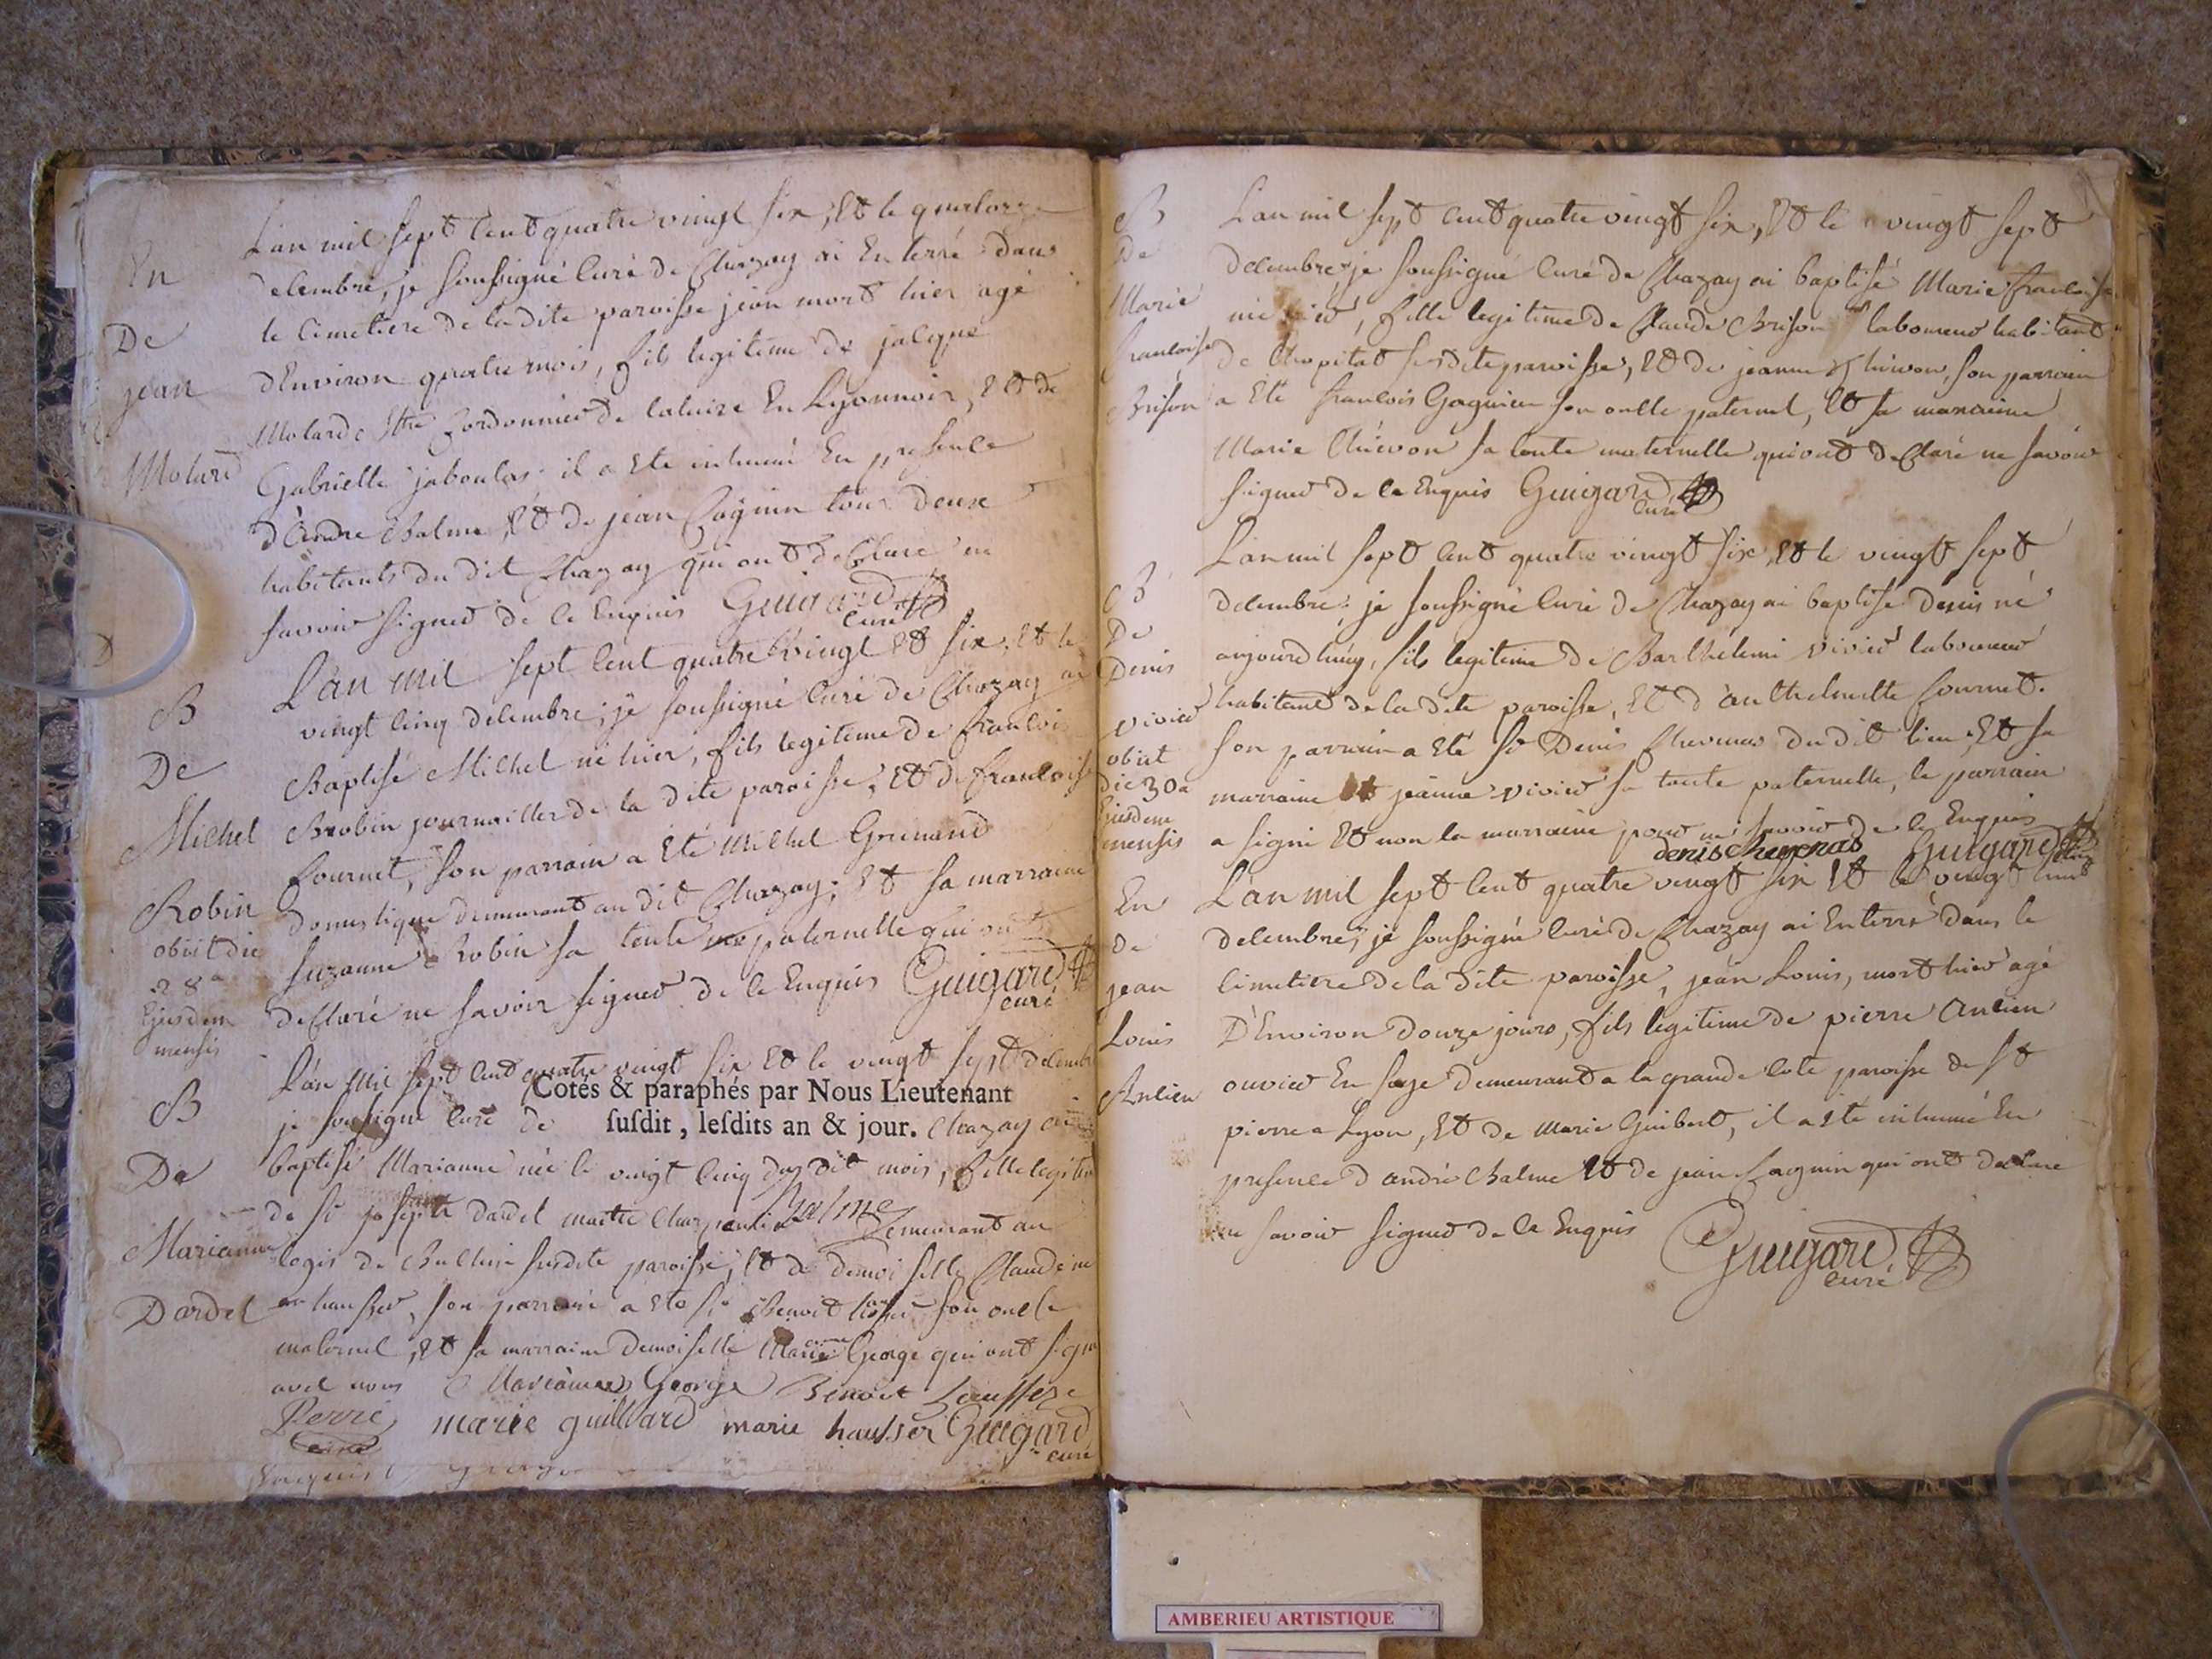 En
De
jean
Molard
L'an mil sept cent quatre vingt six, et le quatorze
decembre, je soussigné curé de Chazay ai enterré dans
le cimetiere de la dite paroisse jean mort hier agé
d'environ quatre mois, fils legitime de jacque
Molard Mtre Cordonnier de en Lyonnois, et de
Gabrielle jaboulas il a ete inhumé en presence
d'andre Balme, et de jean Cognin tous deux
habitants du dit Chazay qui ont declare ne
savoir signer de ce enquis Guigard
curé
B
De
Michel
Robin
obiit die
28a
Ejusdem
mensis
L'an mil sept cent quatre vingt et six, et le
vingt cinq decembre, je soussigné curé de Chazay ai
Baptisé Michel né hier, fils legitime de francois
Robin journaillier de la dite paroisse, et de francoise
fournet, son parrain a ete Michel Grimand
domestique demeurant au dit Chazay, et sa marraine
suzanne Robin sa tente paternelle qui ont
declaré ne savoir signer de ce enquis Guigard
curé
B
De
Marianne
Dardel
L'an mil sept cent quatre vingt six et le vingt sept decembre
Cotés & paraphés par Nous Lieutenant
je soussigné curé de ſuſdit, leſdits an & jour. Chazay ai
baptisé Marianne née le vingt cinq du dit mois, fille legitime
de sr joseph dardel maitre charpentier demeurant au
Balme
logis de susdite paroisse, et de demoiselle Claudine
hausser, son parrain a ete sr Benoit son oncle
maternel, et sa marraine demoiselle Marianne George qui ont signé
avec nous Marianne George Benoit haussere
Perrie marie guillard marie hausser Guigard
curé
B
De
Marie
francoise
Brison
L'an mil sept cent quatre vingt six, et le vingt sept
decembre je soussigné curé de Chazay ai baptisé Marie francoise
née hier, fille legitime de Claude Brison laboureur habitant
de susdite paroisse, et de jeanne Chievon, son parrain
a ete francois Gagnieu son oncle paternel, et sa marraine
Marie Chievon sa tente maternelle qui ont declaré ne savoir
signer de ce enquis Guigard
curé
B
De
Denis
vivier
obiit
die 30a
Ejusdem
mensis
L'an mil sept cent quatre vingt six, et le vingt sept
decembre, je soussigné curé de Chazay ai baptisé denis né
aujourdhuy, fils legitime de Barthelemi vivier laboureur
habitant de la dite paroisse, et d'anthelmette fournet.
son parrain a eté sr Denis Chevenas du dit lieu, et sa
marraine jeanne vivier sa tante paternelle, le parrain
a signé et non la marraine pour ne savoir de ce enquis
denis chevenas Guigard
curé
En
De
jean
Louis
Ancien
L'an mil sept cent quatre vingt six et le vingt huit
decembre, je soussigné curé de Chazay ai enterré dans le
cimetiere de la dite paroisse, jean Louis, mort hier agé
D'Environ douze jours, fils legitime de pierre Ancien
ouvrier en soye demeurant a la grande cote paroisse de st
pierre a Lyon, et de marie Guibert, il a eté inhumé en
presence d'andré Balme et de jean Cagnin qui ont declare
ne savoir signer de ce enquis
Guigard
curé
AMBERIEU ARTISTIQUE